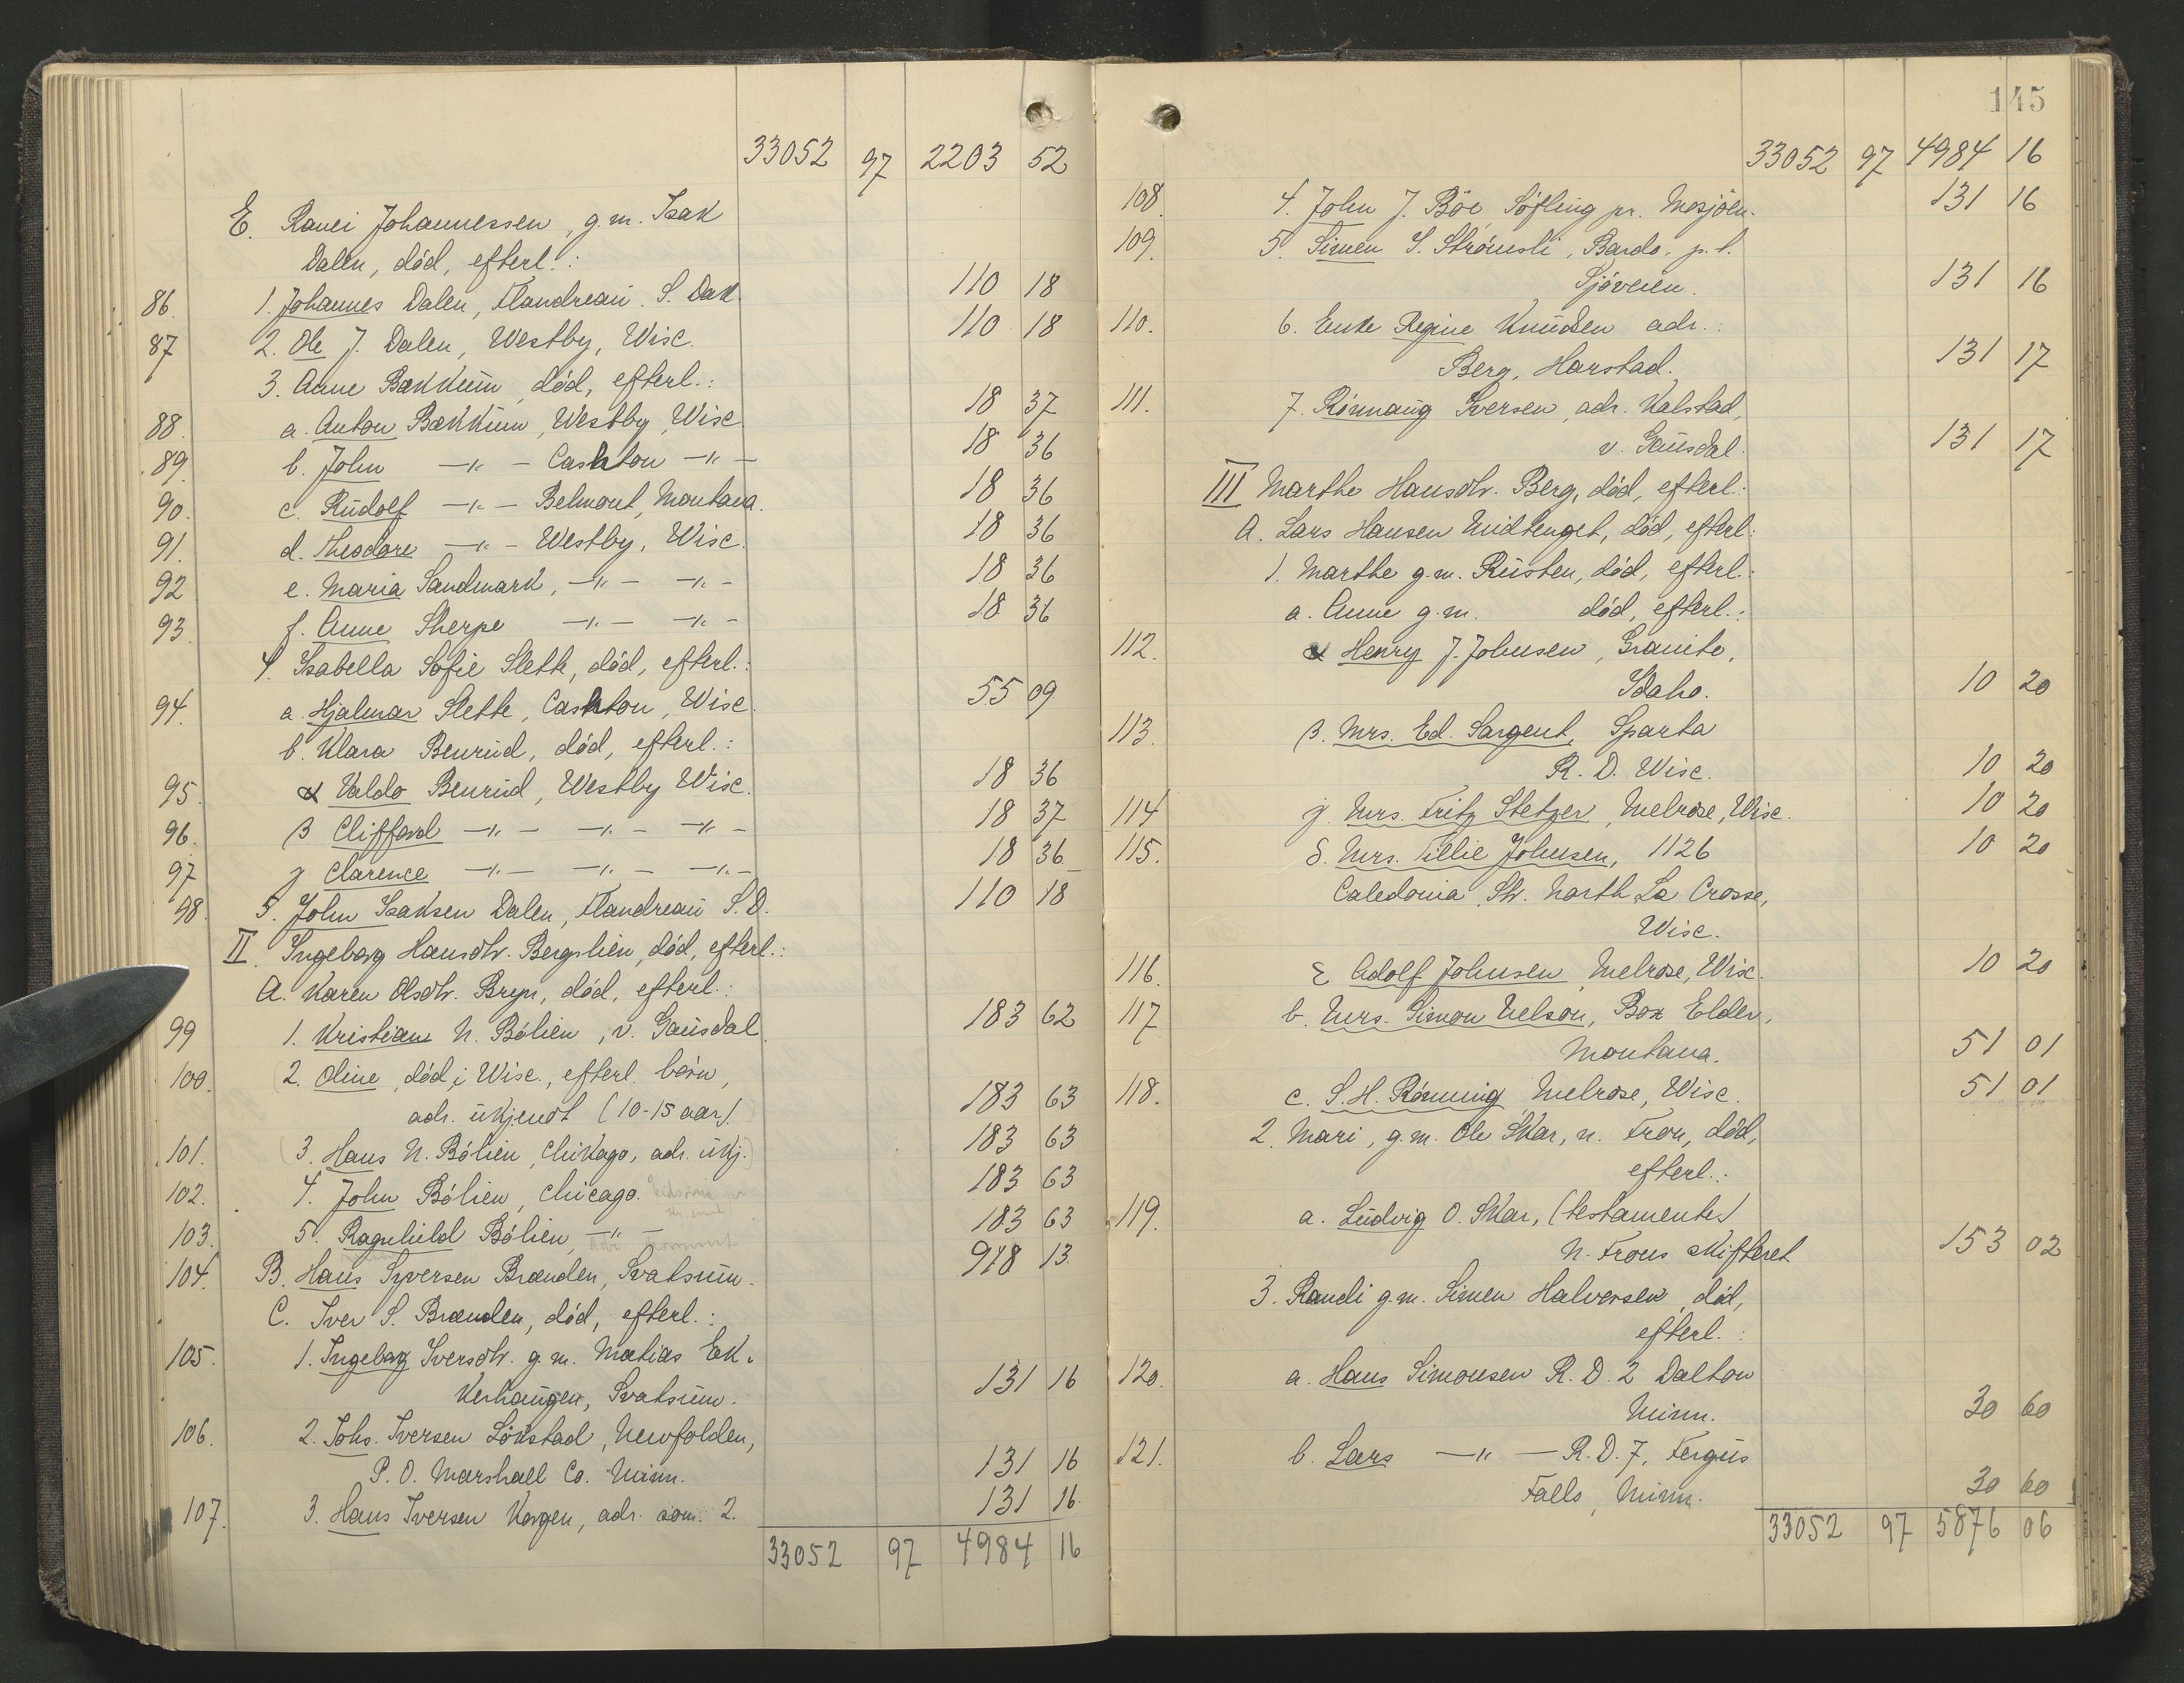 33052 97 2203 52
E. Ranei Johannessen, g.m. Isak
Dalen, död, efterl.:
86. 1. Johannes Dalen, Flandreau. S. Dak. 110 18
87 2. Ole J. Dalen, Westby, Wisc. 110 18
3. Anne Bækkum, död, efterl.:
88. a. Anton Bækkum, Westby, Wisc. 18 37
89. b. John —"— Cashton —"— 18 36
90. c. Rudolf —"— Belmont, Montana. 18 36
91. d. Theodore —"— Westby, Wisc. 18 36
92 e. Maria Sandmark, —"— —"— 18 36
93. f. Anne Sherpe —"— —"— 18 36
4. Isabella Sofie Slette, död, efterl.:
94. a. Hjalmar Slette, Cashton, Wisc. 55 09
b. Klara Benrud, död, efterl.:
95. α Valdo Benrud, Westby Wisc. 18 36
96. β Clifford —"— —"— —"— 18 37
97 γ Clarence —"— —"— —"— 18 36
98. 5. John Isaksen Dalen, Flandreau S.D. 110 18
II. Ingeborg Hansdtr. Bergslien, död, efterl.:
A. Karen Olsdtr. Bryn, död, efterl.:
99 1. Kristian N. Bölien, v. Gausdal. 183 62
100. (2. Oline, död i Wisc., efterl. börn,
adr. ukjendt (10-15 aar). 183 63
101. (3. Hans N. Bölien, Chikago, adr. ukj.) 183 63
102. 4. John Bölien, Chicago. 183 63
103. 5. Ragnhild Bölien, —"— 183 63
104. B. Hans Syversen Brænden, Svatsum. 918 13.
C. Iver S. Brænden, död, efterl.:
105. 1. Ingeborg Iversdtr. g.m. Matias Ek-
kerhaugen, Svatsum. 131 16
106. 2. Johs. Iversen Lökstad, Newfolden,
P.O. Marshall Co. Minn. 131 16
107. 3. Hans Iversen Korgen, adr. som 2. 131 16.
33052 97 4984 16
145
33052 97 4984 16
108. 4. John J. Böe Söfting pr. Mosjöen. 131 16
109. 5. Simen I. Strömsli, Bardo, p.t.
Sjöveien. 131 16
110. 6. Enke Regine Knudsen adr.:
Berg, Harstad. 131 17
111. 7. Rönnaug Iversen, adr. Kalstad,
v. Gausdal. 131 17
III Marthe Hansdtr. Berg, död, efterl.:
A. Lars Hansen Midtenget, död, efterl:
1. Marthe g.m. Rusten, död, efterl.:
a. Anne g.m. död, efterl.:
112. α Henry J. Johnsen, Granite,
Idaho. 10 20
113. β. Mrs. Ed. Sargent, Sparta
R.D. Wisc. 10 20
114 γ. Mrs. Fritz Stetzer, Melrose, Wisc. 10 20
115. δ. Mrs. Tillie Johnsen, 1126 10 20
Caledonia St. North La Crosse,
Wisc.
116. ε Adolf Johnsen, Melrose, Wisc. 10 20
117 b. Mrs. Simon Nelson, Box Elder,
Montana. 51 01
118. c. S.H. Rönning Melrose, Wisc. 51 01
2. Mari, g.m. Ole Skar, n. Fron, död,
efterl.:
119. a. Ludvig O. Skar, (testamenter)
N. Frons skifteret 153 02
3. Randi g.m. Simen Halvorsen, död,
efterl.:
120. a. Hans Simonsen R.D. 2 Dalton
Minn. 30 60
121. b. Lars —"— R.D. 7, Fergus
Falls, Minn. 30 60
33052 97 5876 06